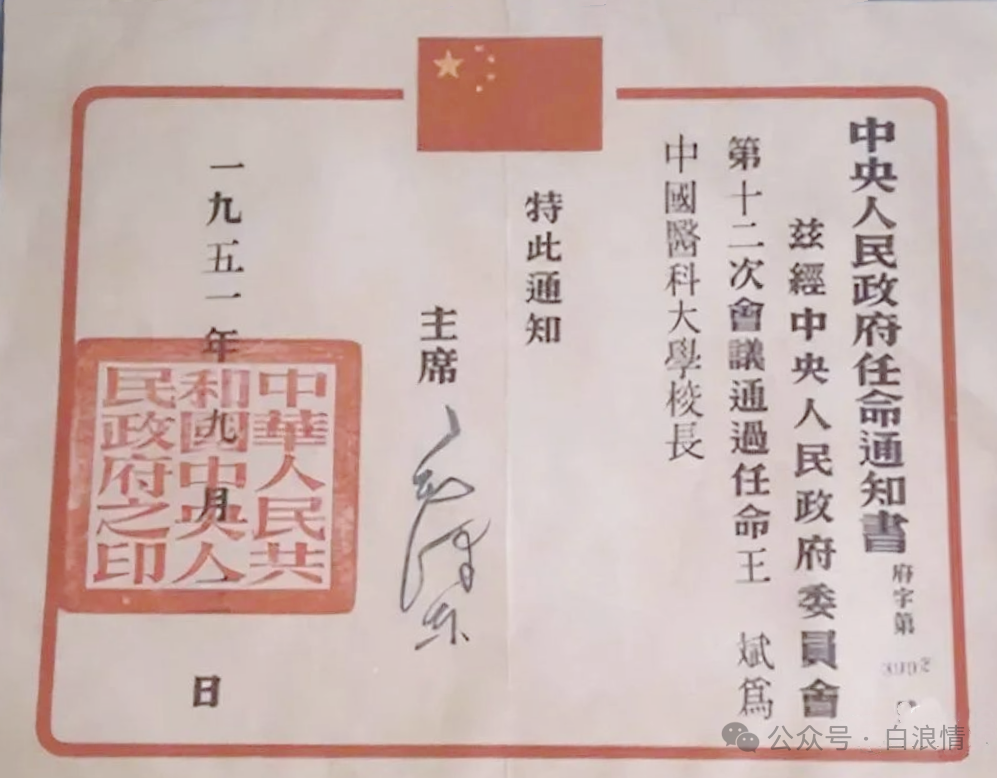 中央人民政府任命通知書
府字第
3992
茲經中央人民政府委員會
第十二次會議通過任命王 斌爲
中國醫科大學校長
特此通知
主席
毛澤東
一九五一年九月 日
中華人民共
和國中央人
民政府之印
公众号 · 白浪情